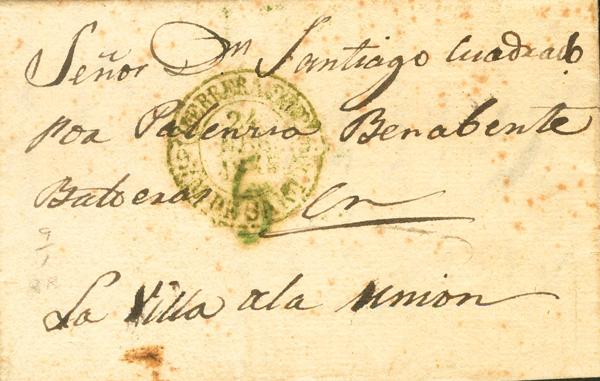 Señor Dn Santiago Cuadrado
poa Palencia Benabente
24
en
La Villa ala union